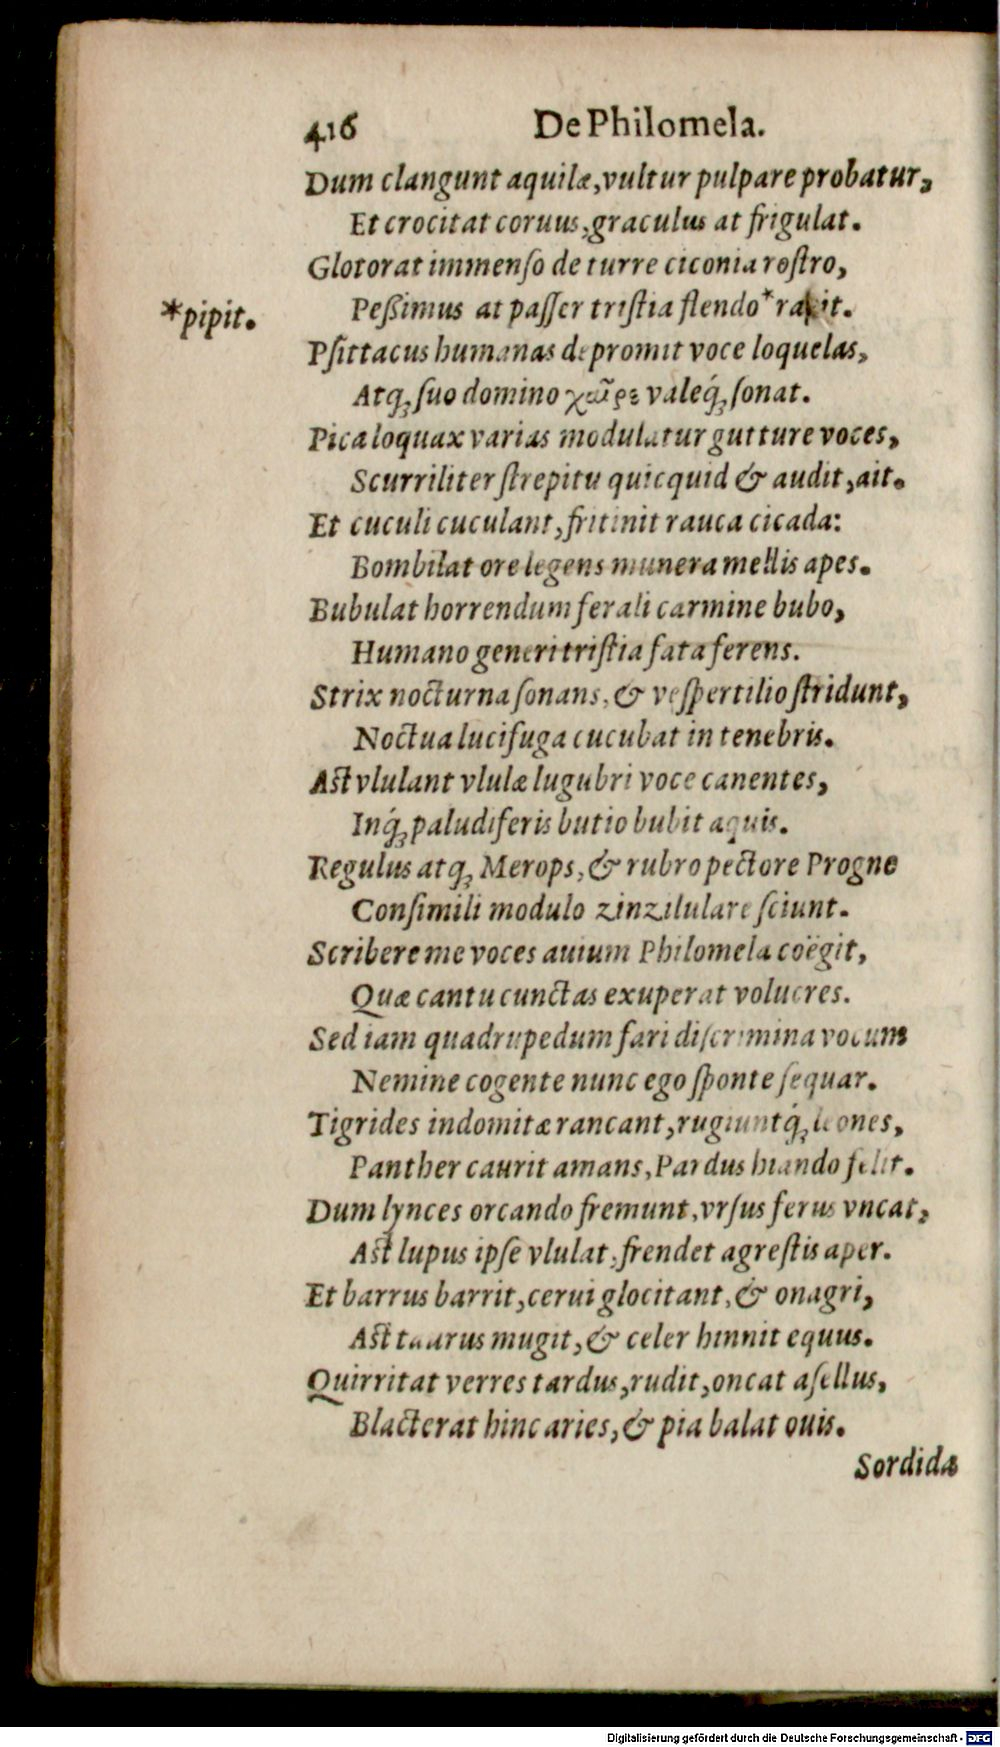 416 De Philomela.
Dum clangunt aquilæ, vultur pulpare probatur,
Et crocitat coruus, graculus at frigulat.
Glotorat immenſo de turre ciconia roſtro,
Peßimus at paſſer triſtia flendo *
*pipit.
Pſittacus humanas depromit voce loquelas,
Atq́; ſuo domino χαῖρε valeq́; ſonat.
Pica loquax varias modulatur gutture voces,
Scurriliter ſtrepitu quicquid & audit, ait.
Et cuculi cuculant, fritinit rauca cicada:
Bombilat ore legens munera mellis apes.
Bubulat horrendum ferali carmine bubo,
Humano generi triſtia fata ferens.
Strix nocturna ſonans, & veſpertilio ſtridunt,
Noctua lucifuga cucubat in tenebris.
Aſt vlulant vlulæ lugubri voce canentes,
Inq́; paludiferis butio bubit aquis.
Regulus atq; Merops, & rubro pectore Progne
Conſimili modulo zinzilulare ſciunt.
Scribere me voces auium Philomela coëgit,
Quæ cantu cunctas exuperat volucres.
Sed iam quadrupedum fari diſcrimina vocum
Nemine cogente nunc ego ſponte ſequar.
Tigrides indomitæ rancant, rugiuntq́; leones,
Panther caurit amans, Pardus hiando felit.
Dum lynces orcando fremunt, vrſus ferus vncat,
Aſt lupus ipſe vlulat, frendet agreſtis aper.
Et barrus barrit, cerui glocitant, & onagri,
Aſt taurus mugit, & celer hinnit equus.
Quirritat verres tardus, rudit, oncat aſellus,
Blacterat hinc aries, & pia balat ouis.
Sordida
Digitalisierung gefördert durch die Deutsche Forschungsgemeinschaft - DFG